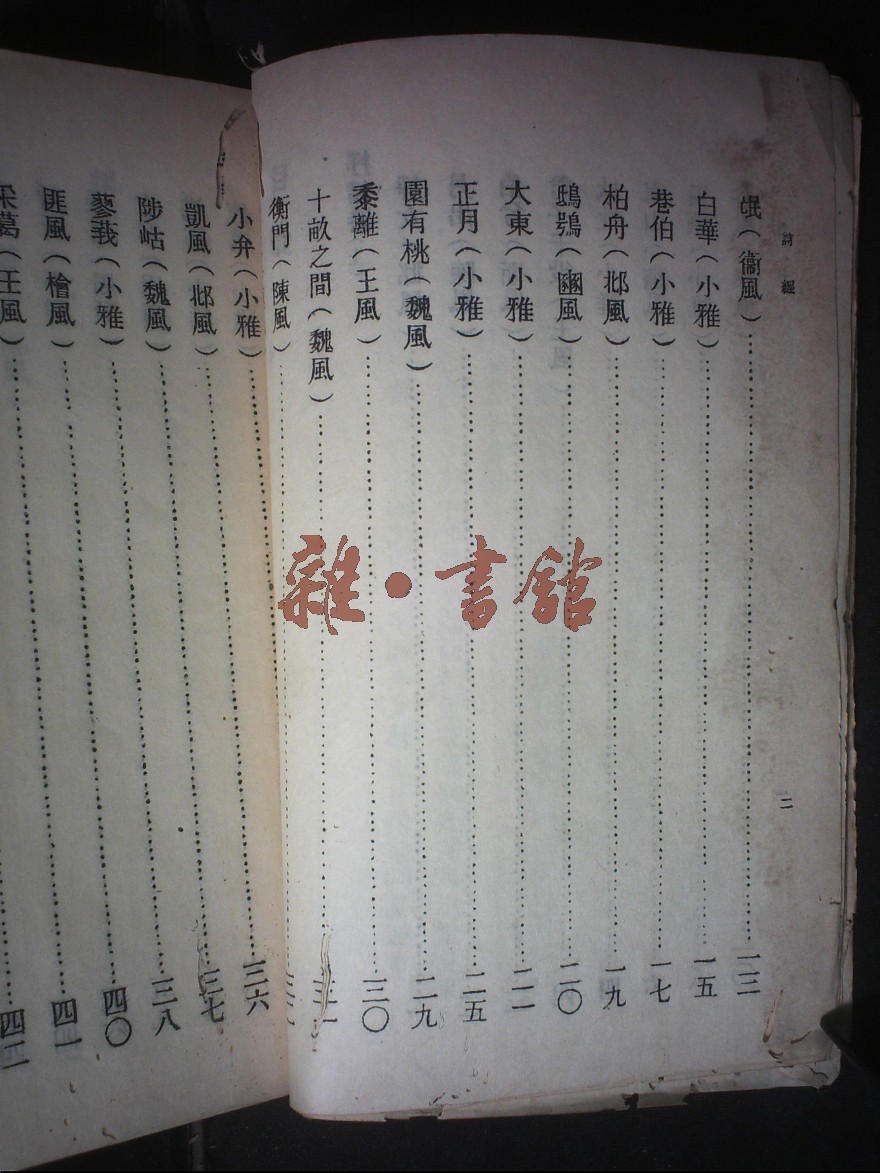 詩經 二
氓（衞風）……一三
白華（小雅）……一五
巷伯（小雅）……一七
柏舟（邶風）……一九
鴟鴞（豳風）……二〇
大東（小雅）……二一
正月（小雅）……二五
園有桃（魏風）……二九
黍離（王風）……三〇
十畝之間（魏風）……
衡門（陳風）……
小弁（小雅）……三六
凱風（邶風）……三七
陟岵（魏風）……三八
蓼莪（小雅）……四〇
匪風（檜風）……四一
采葛（王風）……四二
雜·書館